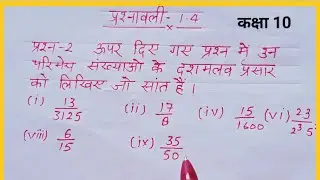 प्रश्नावली - 1.4
कक्षा 10
प्रश्न-2 ऊपर दिए गए प्रश्न में उन
परिमेय संख्याओं के दशमलव प्रसार
को लिखिए जो सांत हैं।
(i) 13/3125 (ii) 17/8 (iv) 15/1600 (vi) 23/2³5²
(viii) 6/15 (ix) 35/50